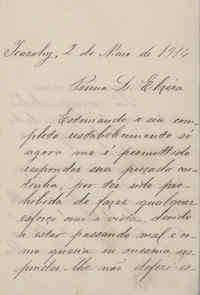 Icarahy, 2 de Maio de 1914
Exma D. Elzira
Estimando o seu com-
pleto restabelecimento só
agora me é permittido
responder sua presada car-
tinha, por ter sido pro-
hibida de fazer qualquer
esforço com a vista, devido
a estar passando mal, e co-
mo queria eu mesma, res-
ponder-lhe não deferi